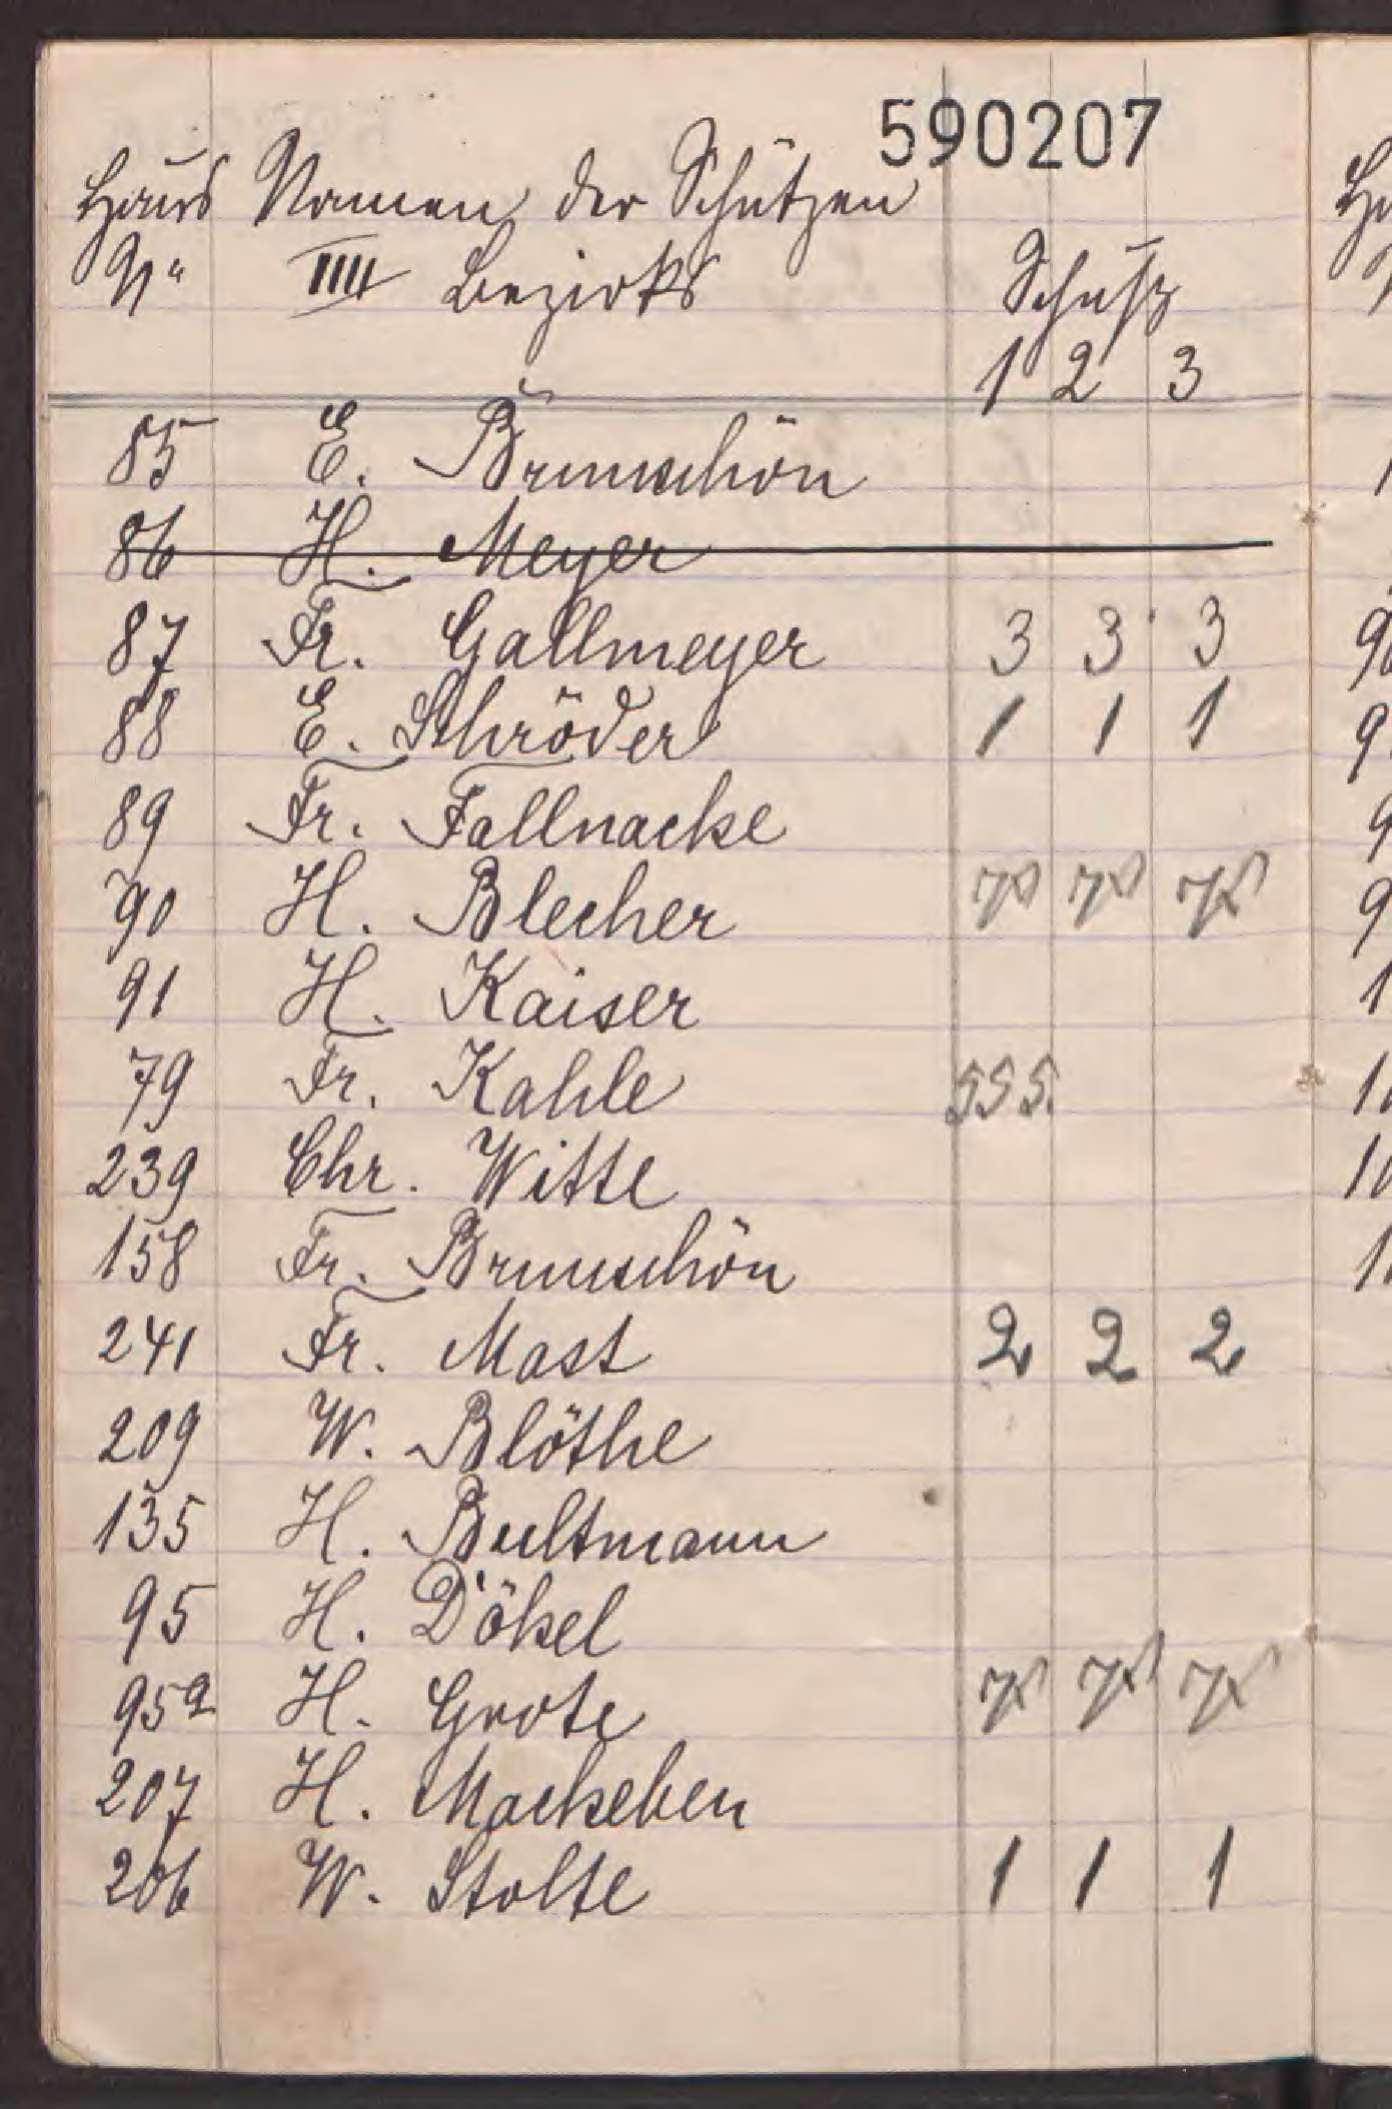 590207
Haus Namen der Schützen
No IIII Bezirks Schuß
1 2 3
85 E. Brunschön
86 H. Meyer
87 Fr. Gallmeyer 3 3 3
88 E. Schröder 1 1 1
89 Fr. Fallnacke
90 H. Blecher
91 H. Kaiser
79 Fr. Kahle 5 5 5.
239 Chr. Witte
158 Fr. Brunschön
241 Fr. Mast 2 2 2
209 W. Blöthe
135 H. Bultmann
95 H. Dökel
95a H. Grote
207 H. Mackeben
206 W. Stolte 1 1 1